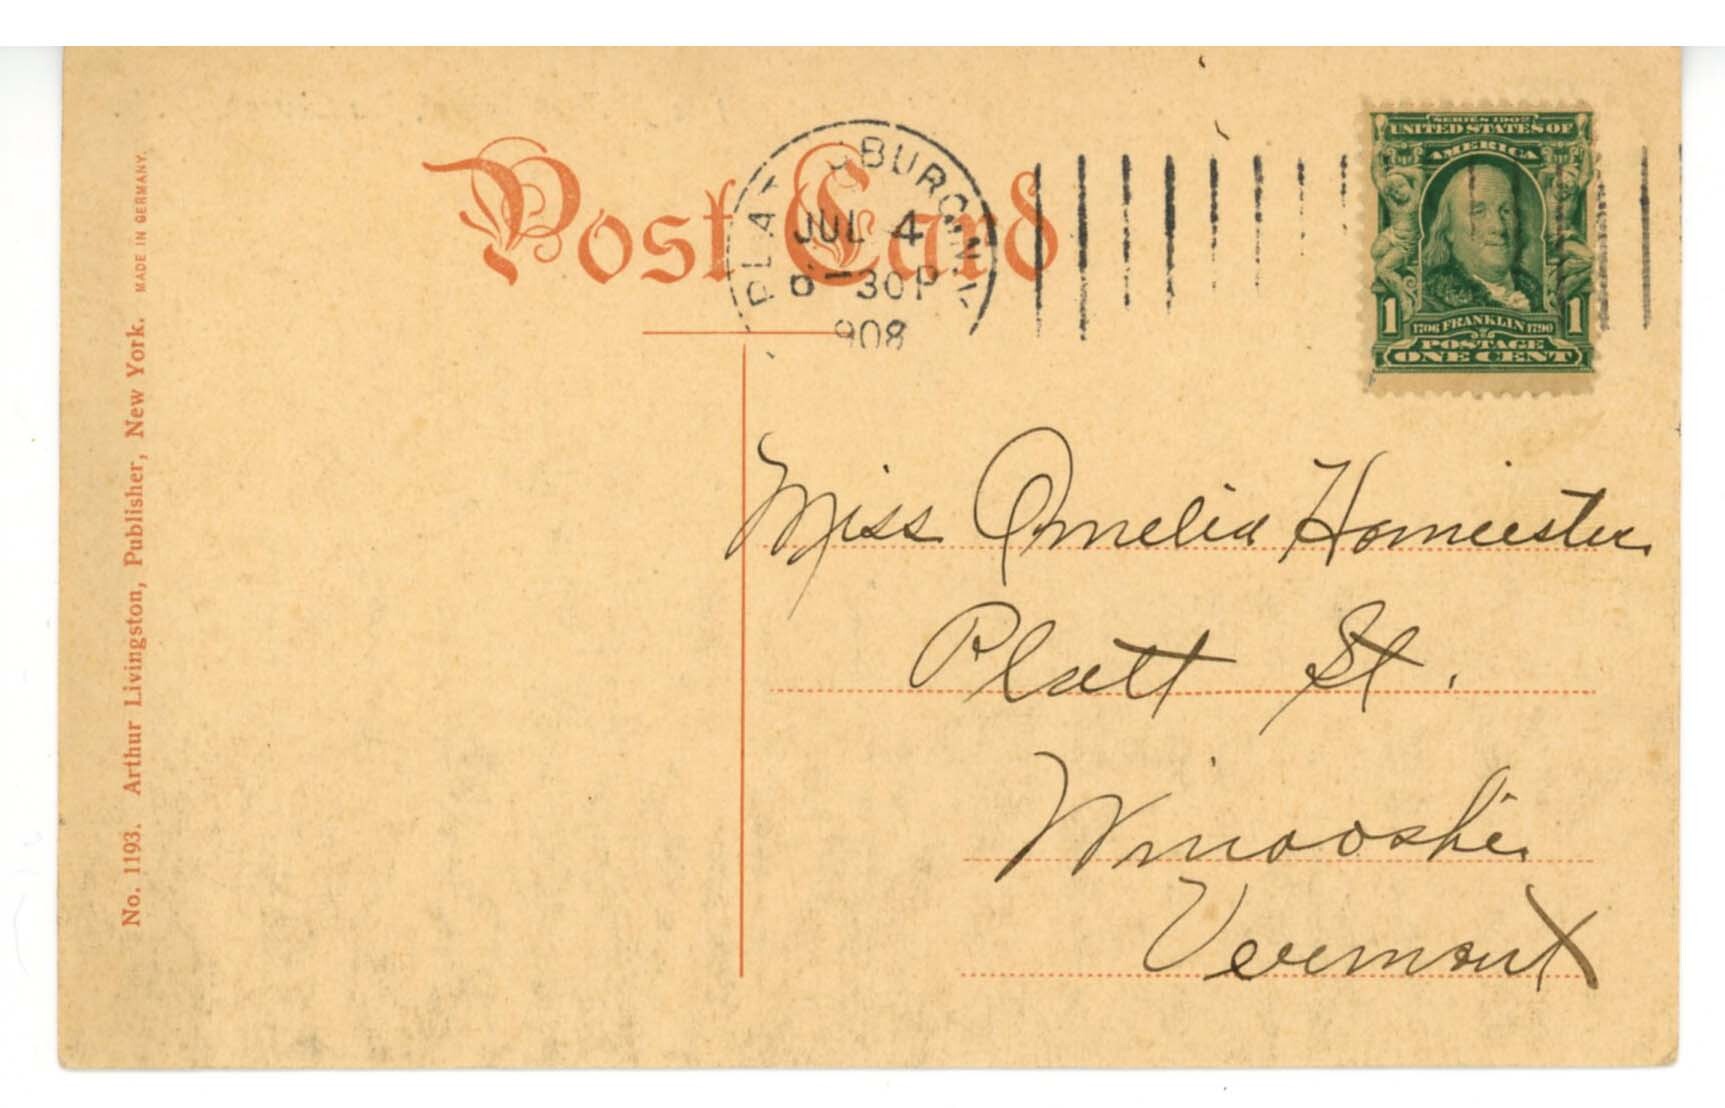 Post Card
PLATTSBURG N.Y.
JUL 4
8-30P
1908
SERIES 1902
UNITED STATES OF
AMERICA
1 1706 FRANKLIN 1790 1
POSTAGE
ONE CENT
Miss Amelia
Platt St.
Winooski
Vermont
No. 1193. Arthur Livingston, Publisher, New York. MADE IN GERMANY.